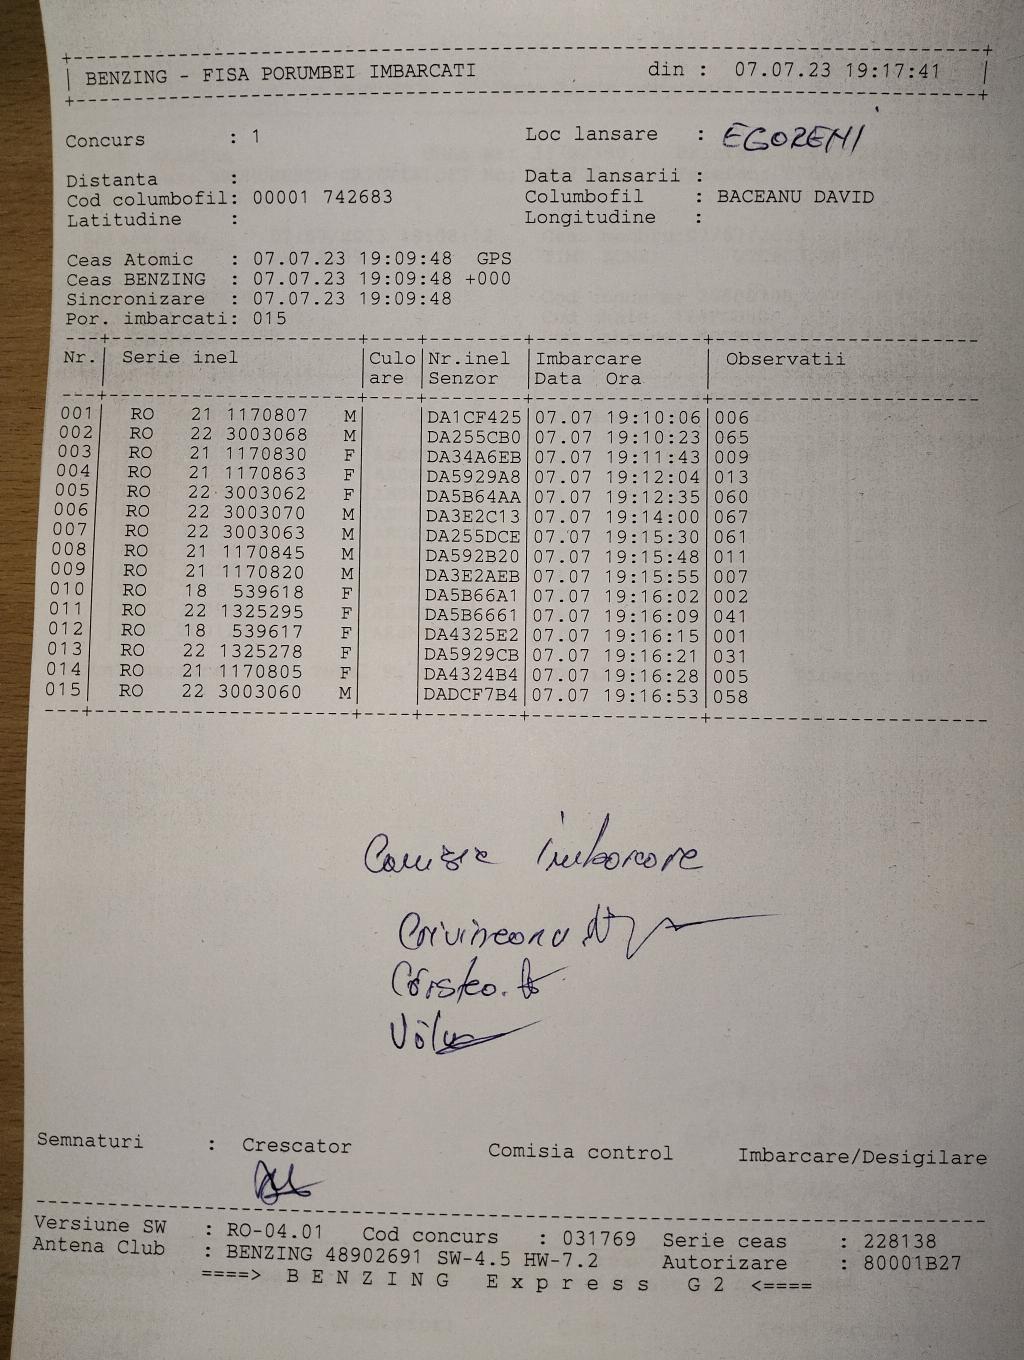 BENZING - FISA PORUMBEI IMBARCATI din : 07.07.23 19:17:41
Concurs : 1 Loc lansare : EGORENI
Distanta : Data lansarii :
Cod columbofil: 00001 742683 Columbofil : BACEANU DAVID
Latitudine : Longitudine :
Ceas Atomic : 07.07.23 19:09:48 GPS
Ceas BENZING : 07.07.23 19:09:48 +000
Sincronizare : 07.07.23 19:09:48
Por. imbarcati: 015
Nr. Serie inel Culo Nr.inel Imbarcare Observatii
are Senzor Data Ora
001 RO 21 1170807 M DA1CF425 07.07 19:10:06 006
002 RO 22 3003068 M DA255CB0 07.07 19:10:23 065
003 RO 21 1170830 F DA34A6EB 07.07 19:11:43 009
004 RO 21 1170863 F DA5929A8 07.07 19:12:04 013
005 RO 22 3003062 F DA5B64AA 07.07 19:12:35 060
006 RO 22 3003070 M DA3E2C13 07.07 19:14:00 067
007 RO 22 3003063 M DA255DCE 07.07 19:15:30 061
008 RO 21 1170845 M DA592B20 07.07 19:15:48 011
009 RO 21 1170820 M DA3E2AEB 07.07 19:15:55 007
010 RO 18 539618 F DA5B66A1 07.07 19:16:02 002
011 RO 22 1325295 F DA5B6661 07.07 19:16:09 041
012 RO 18 539617 F DA4325E2 07.07 19:16:15 001
013 RO 22 1325278 F DA5929CB 07.07 19:16:21 031
014 RO 21 1170805 F DA4324B4 07.07 19:16:28 005
015 RO 22 3003060 M DADCF7B4 07.07 19:16:53 058
Comisie imbarcare
Semnaturi : Crescator Comisia control Imbarcare/Desigilare
Versiune SW : RO-04.01 Cod concurs : 031769 Serie ceas : 228138
Antena Club : BENZING 48902691 SW-4.5 HW-7.2 Autorizare : 80001B27
====> B E N Z I N G E x p r e s s G 2 <====